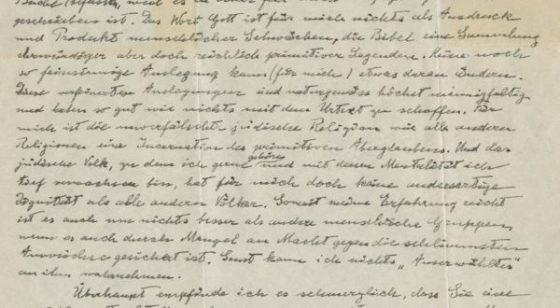 geschrieben ist. Das Wort Gott ist für mich nichts als Ausdruck
und Produkt menschlicher Schwächen, die Bibel eine Sammlung
ehrwürdiger aber doch reichlich primitiver Legenden. Keine noch
so feinsinnige Auslegung kann (für mich) etwas daran ändern.
Diese verfeinerten Auslegungen sind naturgemäss höchst mannigfaltig
und haben so gut wie nichts mit dem Urtext zu schaffen. Für
mich ist die unverfälschte jüdische Religion wie alle anderen
Religionen eine Incarnation des primitiven Aberglaubens. Und das
jüdische Volk, zu dem ich gerne gehöre und mit dessen Mentalität ich
tief verwachsen bin, hat für mich doch keine andersartige
Dignität als alle anderen Völker. Soweit meine Erfahrung reicht
ist es auch um nichts besser als andere menschliche Gruppen,
wenn es auch durch Mangel an Macht gegen die schlimmsten
Auswüchse gesichert ist. Sonst kann ich nichts „Auserwähltes“
an ihm wahrnehmen.
Überhaupt empfinde ich es schmerzlich, dass Sie eine